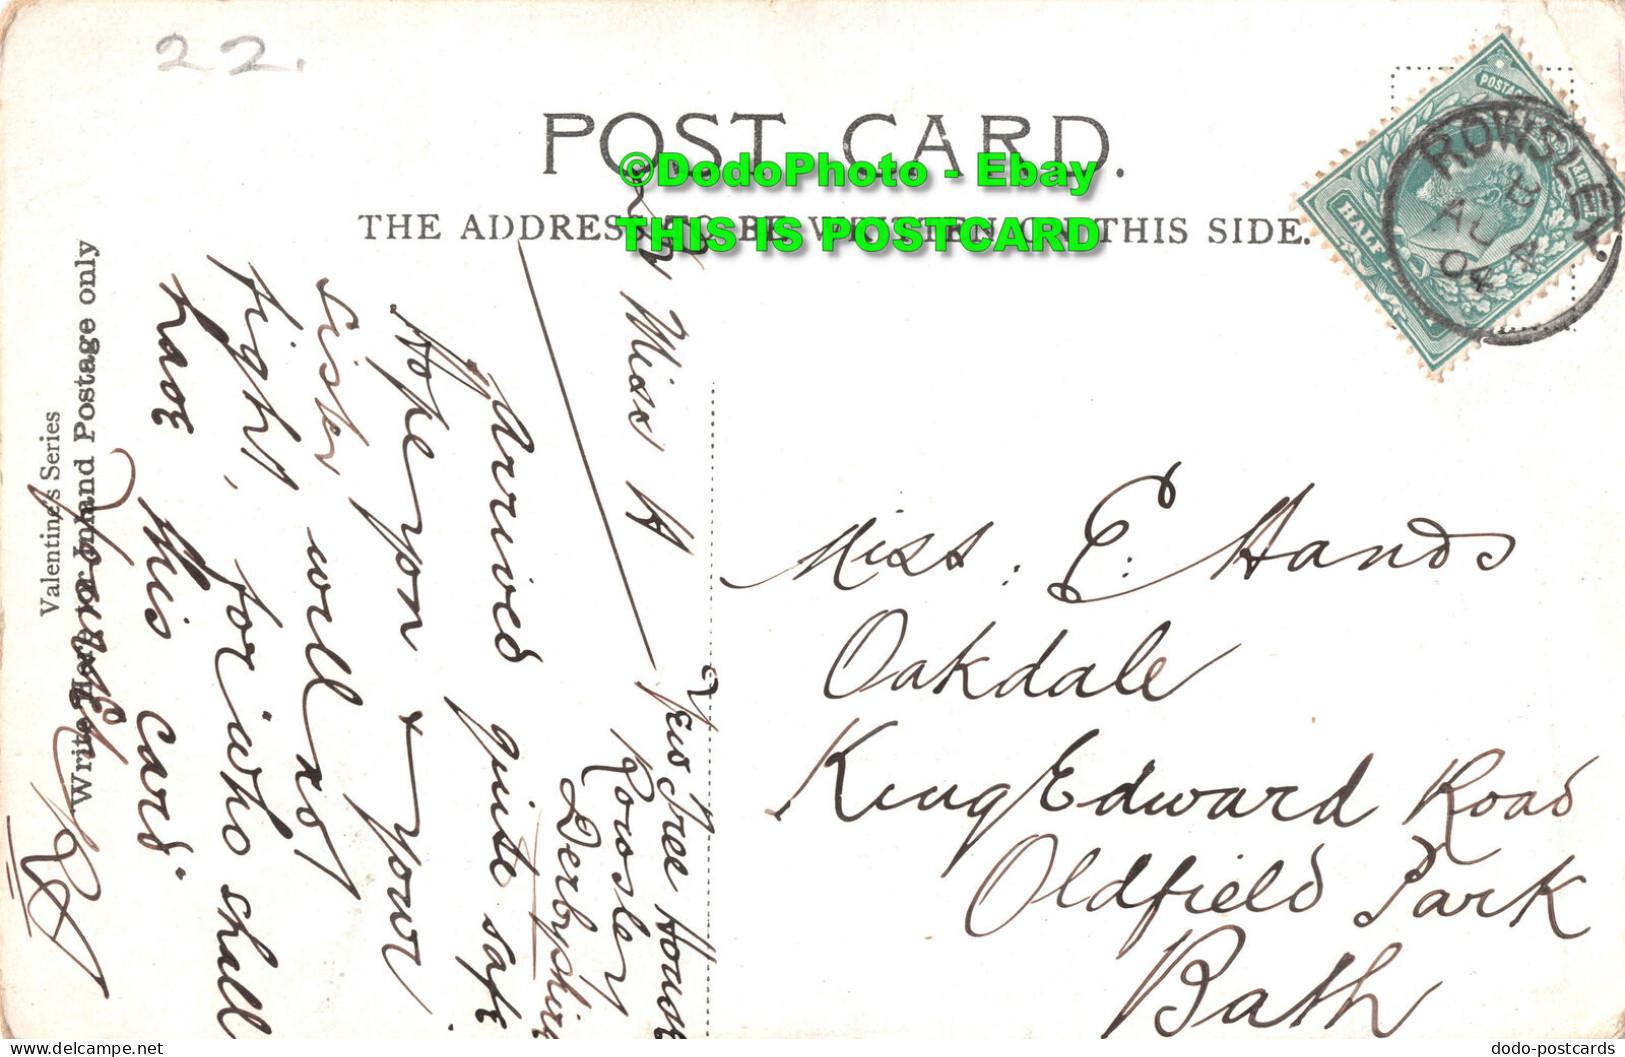 22.
POST CARD.
©DodoPhoto - Ebay
THIS IS POSTCARD
THE ADDRESS TO BE WRITTEN ON THIS SIDE.
POSTAGE
HALF PENNY
ROWSLEY.
B
AU 4
04
Valentine's Series
Write Here for Inland Postage only
Yew Tree House
Rowsley
Derbyshire
Miss H
Arrived quite safe.
Hope you & your
sister, will not
fight, for "who shall
have this card"
Miss. E. Hands
Oakdale
King Edward Road
Oldfield Park
Bath
dodo-postcards